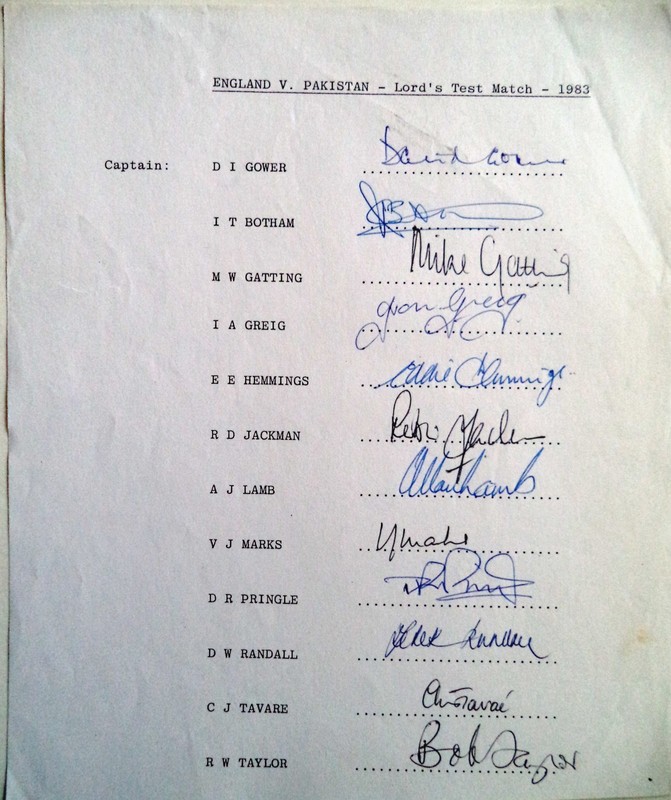 ENGLAND V. PAKISTAN - Lord's Test Match - 1983
Captain: D I GOWER David Gower
I T BOTHAM
M W GATTING Mike Gatting
I A GREIG Ian Greig
E E HEMMINGS Eddie Hemmings
R D JACKMAN
A J LAMB Allan Lamb
V J MARKS
D R PRINGLE
D W RANDALL Derek Randall
C J TAVARE Chris Tavaré
R W TAYLOR Bob Taylor